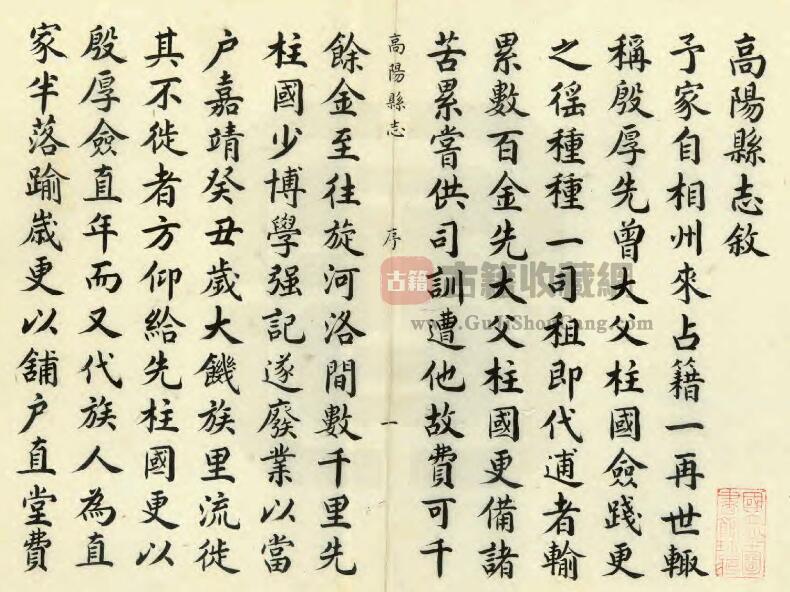 高陽縣志敘
予家自相州來占籍一再世輙
稱殷厚先曾大父柱國僉踐更
之徭種種一司租即代逋者輸
累數百金先大父柱國更備諸
苦累嘗供司訓遭他故費可千
高陽縣志 序 一
餘金至往旋河洛間數千里先
柱國少博學强記遂廢業以當
户嘉靖癸丑歲大饑族里流徙
其不徙者方仰給先柱國更以
殷厚僉直年而又代族人為直
家半落踰歲更以舖户直堂費
古籍 古籍收藏網
www.GuJiShouCang.com